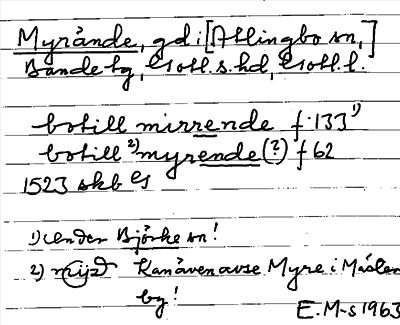 Myrände, gd i [Atlingbo sn,]
Bande tg, Gotl. s. hd, Gotl. l.
botill mirrende f. 133 1)
botill 2) myrende (?) f 62
1523 skb G
1) under Björke sn!
2) Kan även avse Myre i Mästerby!
E. M-s 1963